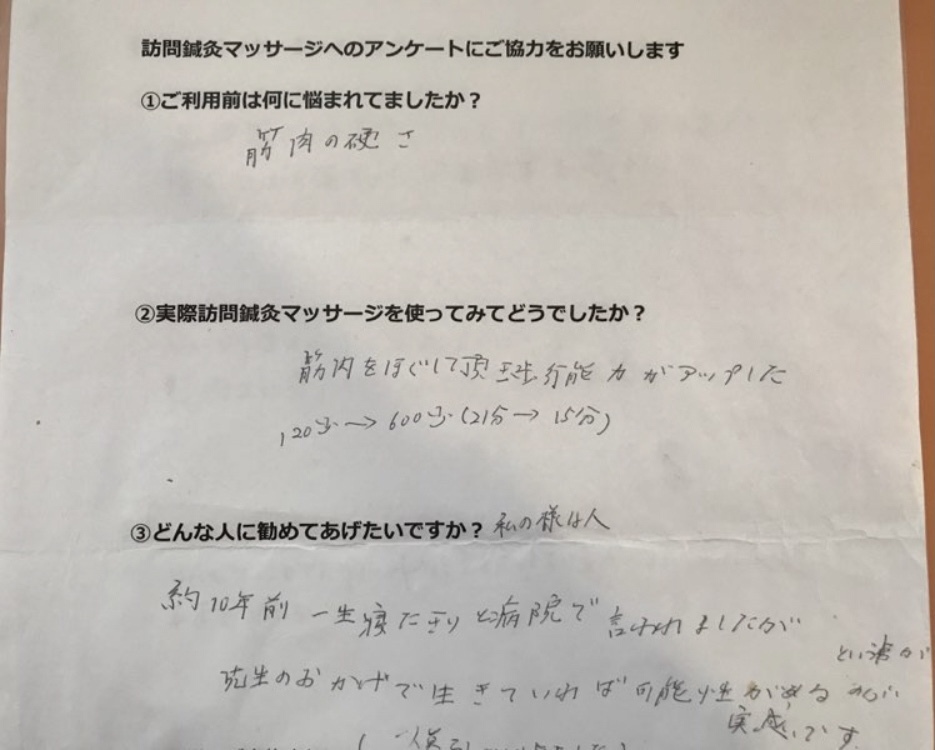 訪問鍼灸マッサージへのアンケートにご協力をお願いします
①ご利用前は何に悩まれてましたか？
筋肉の硬さ
②実際訪問鍼灸マッサージを使ってみてどうでしたか？
筋肉をほぐして頂き歩行能力がアップした
120歩→600歩(21分→15分)
③どんな人に勧めてあげたいですか？ 私の様な人
約10年前一生寝たきりと病院で言われましたが
先生のおかげで生きていれば可能性がある
という事が
実感です